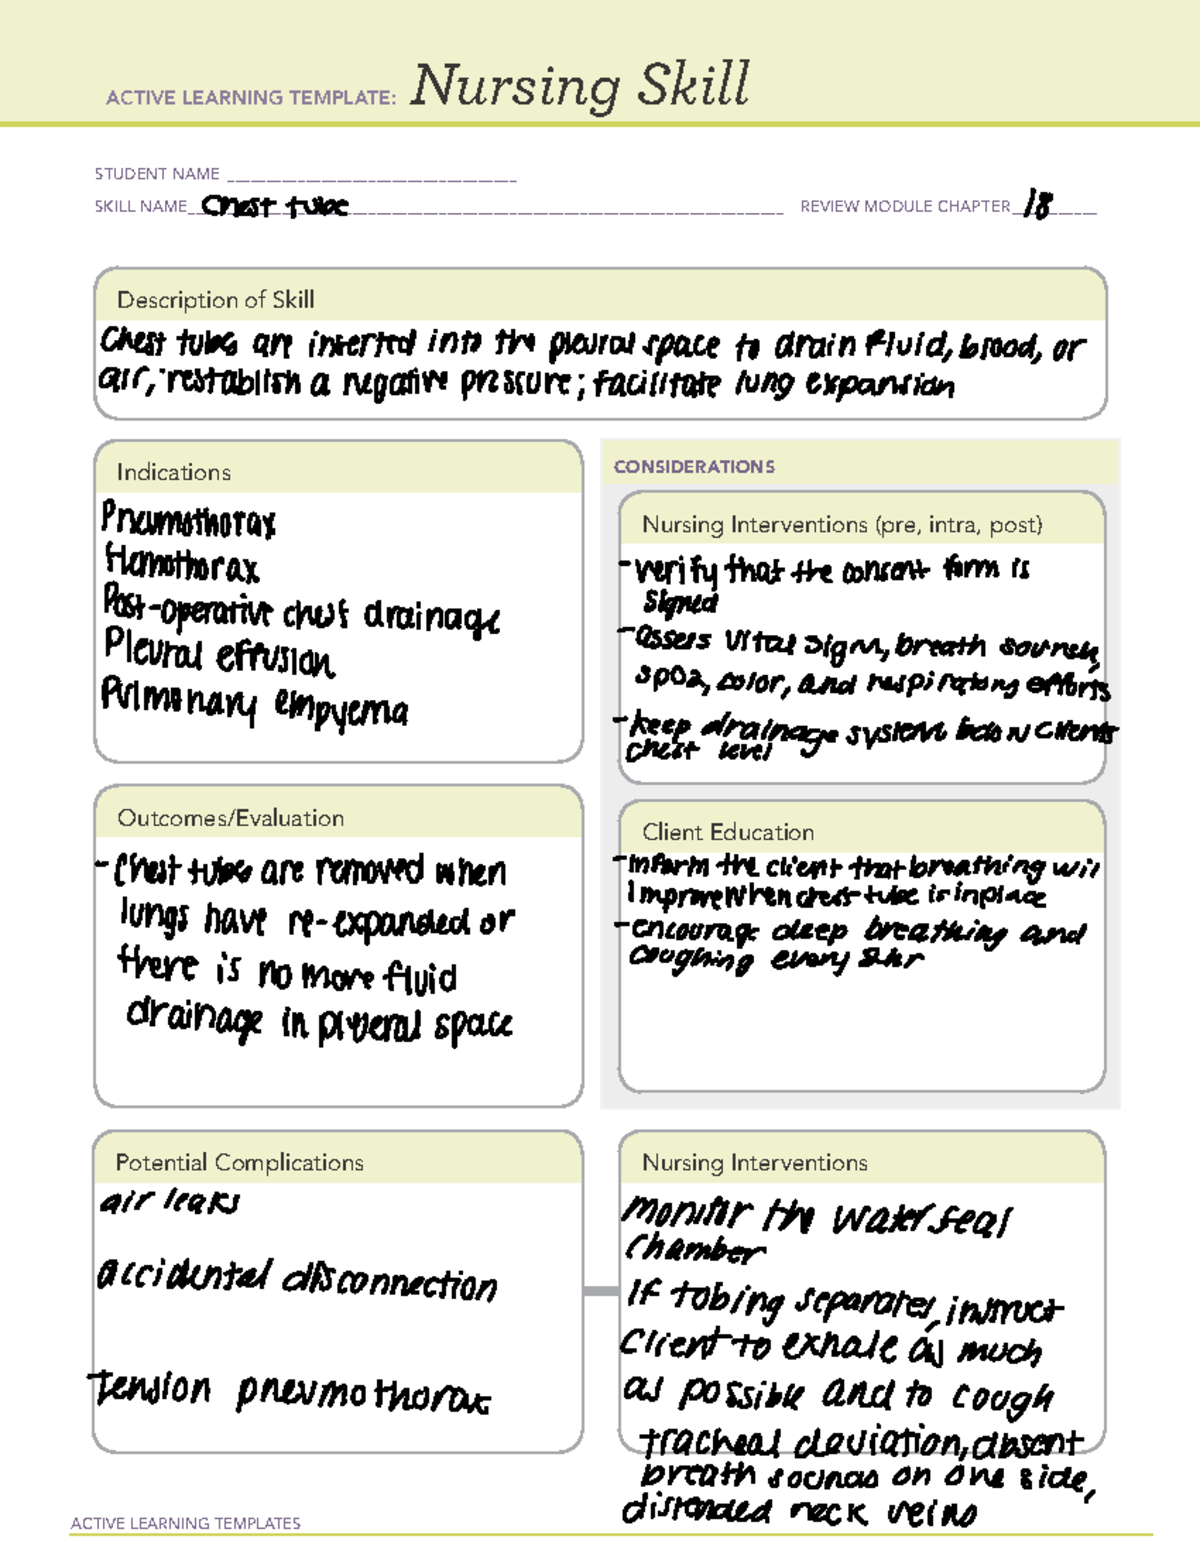 ACTIVE LEARNING TEMPLATE: Nursing Skill
STUDENT NAME
SKILL NAME Chest tube REVIEW MODULE CHAPTER 18
Description of Skill
Chest tubes are inserted into the pleural space to drain fluid, blood, or
air, restablish a negative pressure; facilitate lung expansion
Indications
Pneumothorax
Hemothorax
Post-operative chest drainage
Pleural effusion
Pulmonary empyema
CONSIDERATIONS
Nursing Interventions (pre, intra, post)
-verify that the consent form is
signed
-assess vital signs, breath sounds,
SpO2, color, and respiratory efforts
-keep drainage system below clients
chest level
Outcomes/Evaluation
-Chest tubes are removed when
lungs have re-expanded or
there is no more fluid
drainage in space
Client Education
-inform the client that breathing will
improve when chest tube is in place
-encourage deep breathing and
coughing every 2hr
Potential Complications
air leaks
accidental disconnection
tension pneumothorax
Nursing Interventions
monitor the water seal
chamber
If tubing separates, instruct
client to exhale as much
as possible and to cough
tracheal deviation, absent
breath sounds on one side,
distended neck veins
ACTIVE LEARNING TEMPLATES